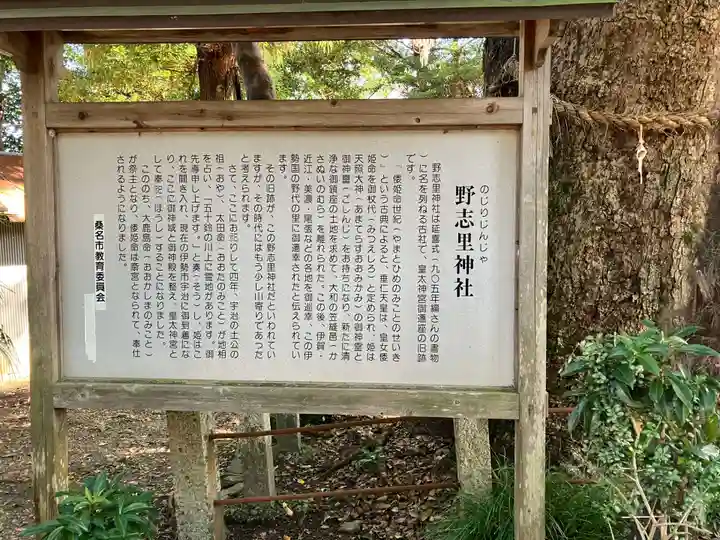 のじりじんじゃ
野志里神社
野志里神社は延喜式（九〇五年編さんの書物
）に名を列ねる古社で、皇太神宮御遷座の旧跡
です。
「倭姫命世紀（やまとひめのみことのせいき
）」という古典によると、垂仁天皇は、皇女倭
姫命を御杖代（みつえしろ）と定められ、姫は
天照大神（あまてらすおおみかみ）の御神霊と
御神璽（ごしんじ）をお持ちになり、新たに清
浄な御鎮座の土地を求めて、大和の笠縫邑（か
さぬいのむら）を離れられた。この後、伊賀・
近江・美濃・尾張などの各地を御巡幸、この伊
勢国の野代の里に御遷幸されたと伝えられてい
ます。
その旧跡が、この野志里神社だといわれてい
ますが、その時代にはもう少し山寄りであった
と考えられます。
さて、ここにお祀りして四年、宇治の土公の
祖（おや）、太田命（おおたのみこと）が地相
を占い、「五十鈴の川上に霊地があります。御
先導申し上げます。」と奏（そう）し、姫はこ
れを聞き入れ、現在の伊勢市宇治に御到着にな
り、ここに御神域と御神殿を整え、皇太神宮と
して奉祀（ほうし）することになりました。
こののち、大鹿島命（おおかしまのみこと）
が祭主となり、倭姫命は斎宮となられて、奉仕
されるようになりました。
桑名市教育委員会